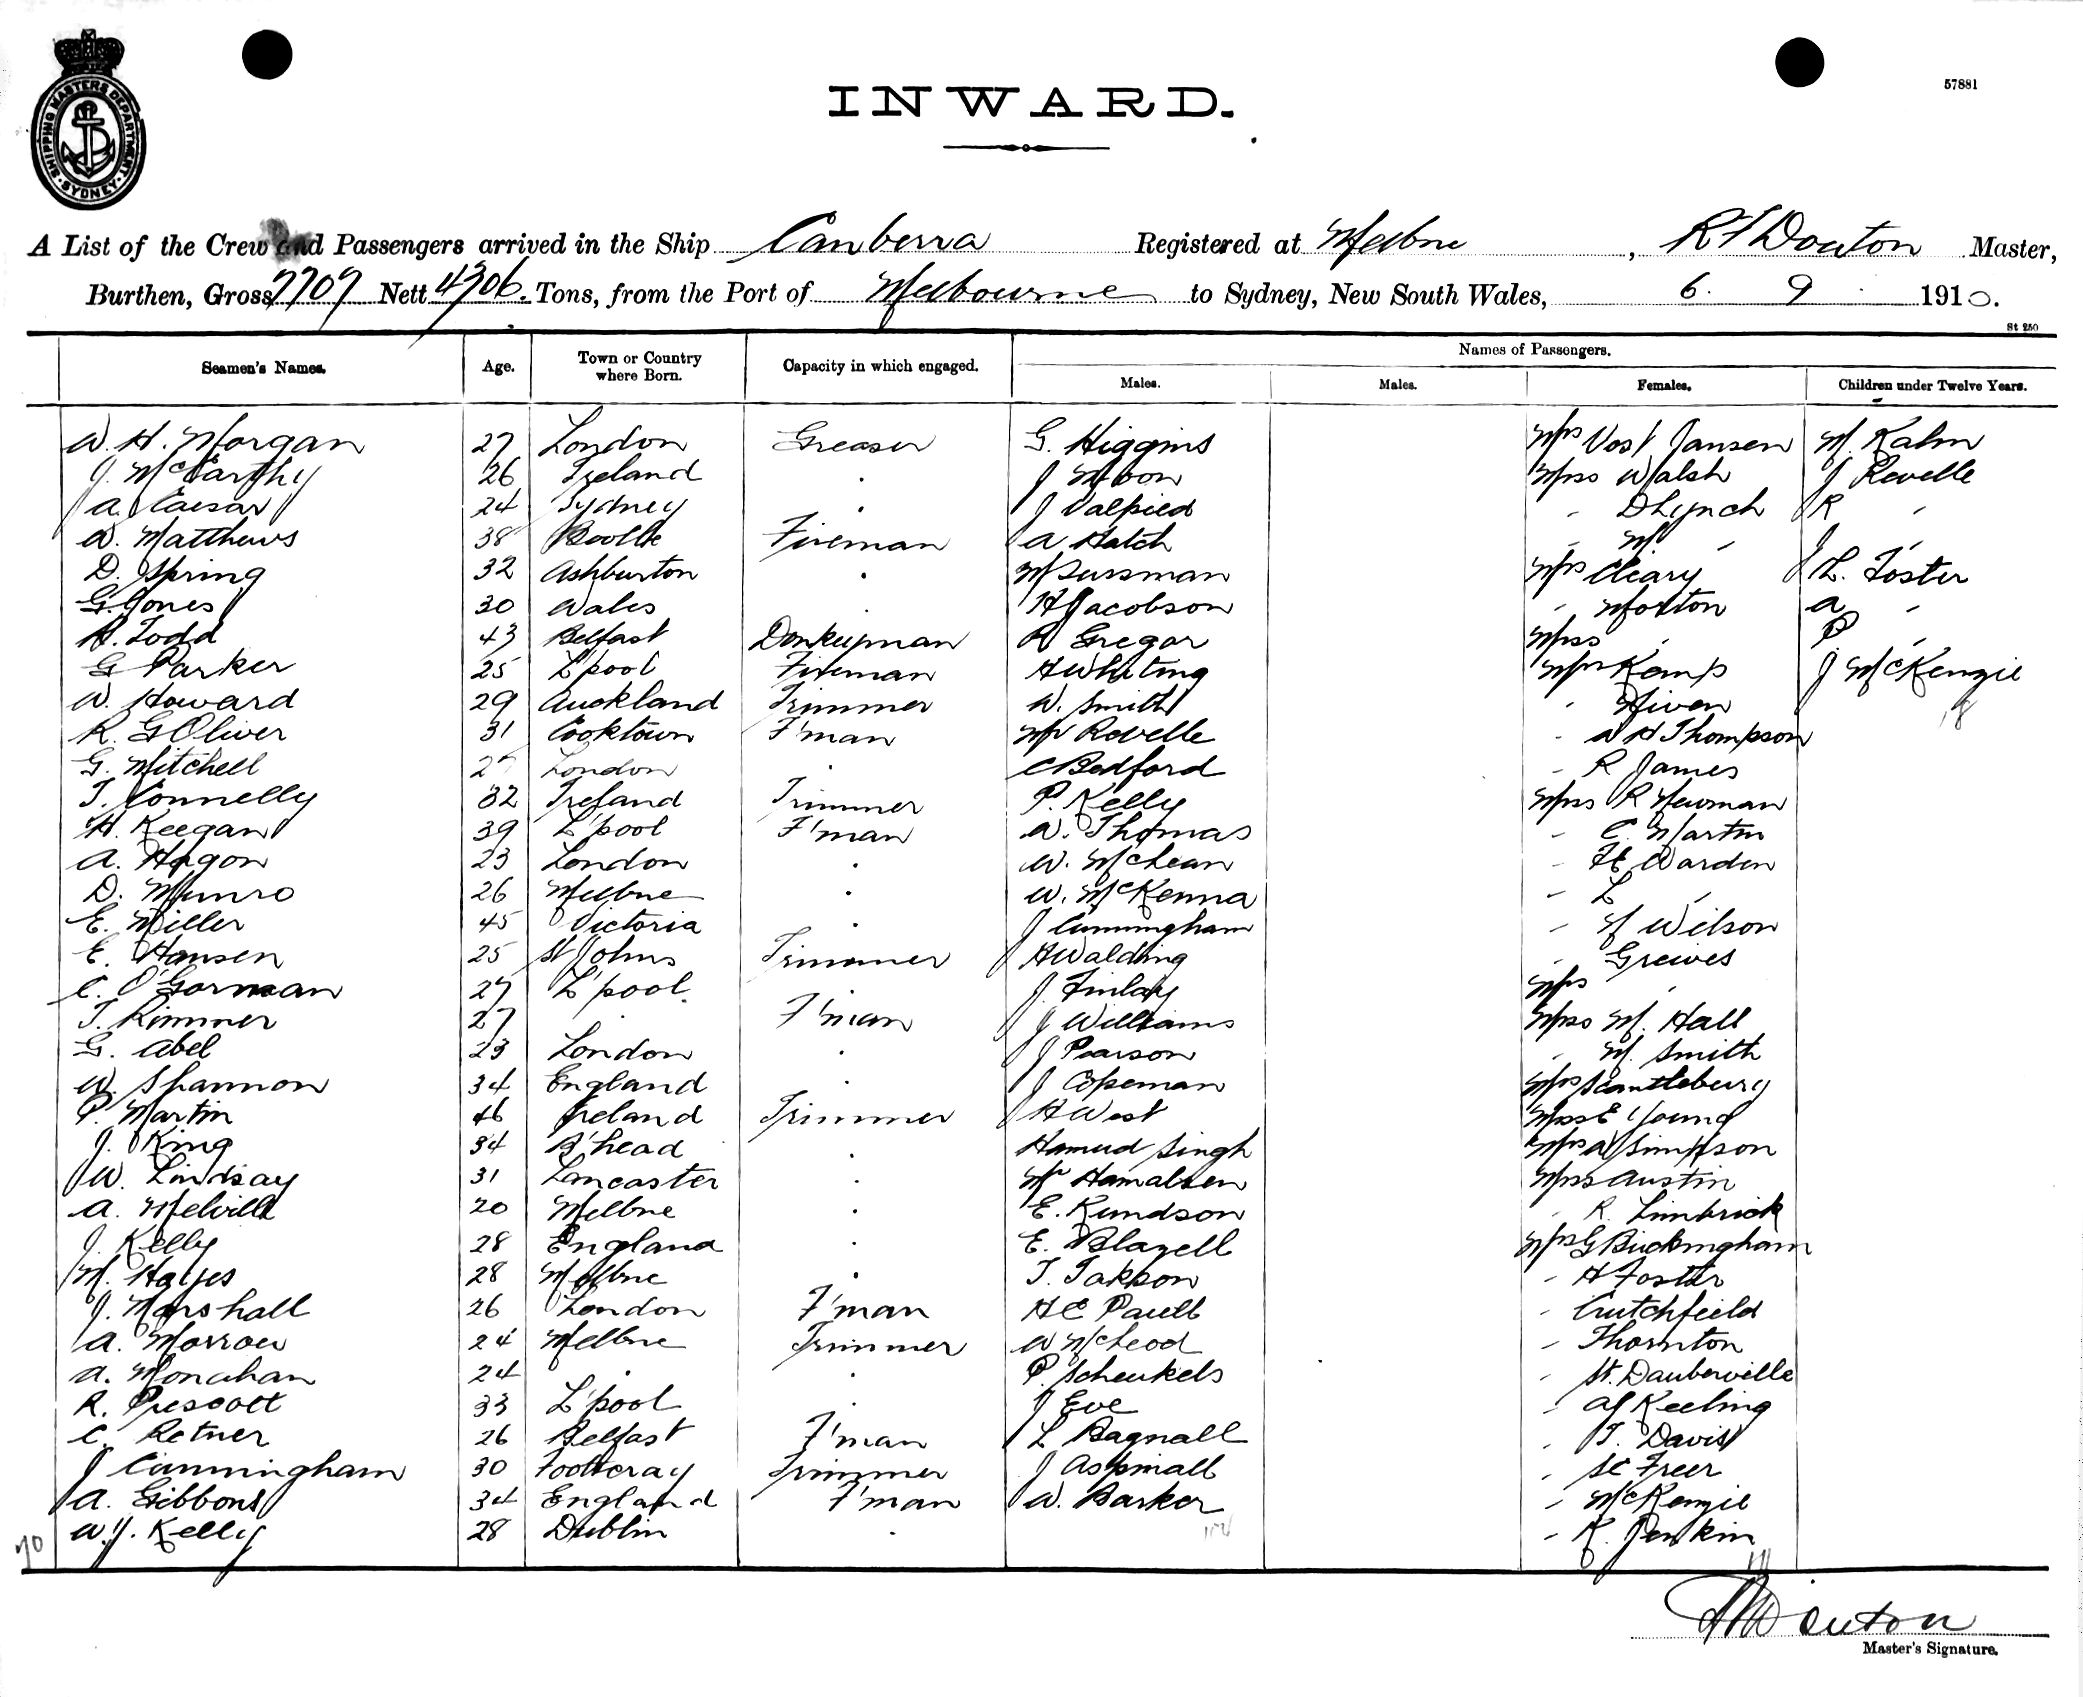 SHIPPING MASTERS DEPARTMENT SYDNEY
57881
INWARD.
A List of the Crew and Passengers arrived in the Ship Canberra Registered at Melbne, R Douton Master,
Burthen, Gross 7707 Nett Tons, from the Port of Melbourne to Sydney, New South Wales, 6. 9. 1910.
St 250
Seamen's Names. Age. Town or Country where Born. Capacity in which engaged. Names of Passengers.
Males. Males. Females. Children under Twelve Years.
W. H. Morgan 27 London Greaser G. Higgins Mrs Vost Jansen M. Kalm
J. McCarthy 26 Ireland . J Moon Miss Walsh J Revelle
A. Caesar 24 Sydney . J Valpied - D Lynch R "
W. Matthews 38 Bootle Fireman A Hatch - M " J "
D. Spring 32 Ashburton . M Sussman Mrs Cleary L. Foster
G. Jones 30 Wales . H Jacobson " Morton A "
H. Todd 43 Belfast Donkeyman R Gregor Miss " P "
G Parker 25 L'pool Fireman H Whiting Mrs Kemp J McKenzie
W. Howard 29 Auckland Trimmer W. Smith " Niven 18
R. G Oliver 31 Cooktown F'man Mr Revelle - A H Thompson
G. Mitchell London . C Bedford - R James
T. Connelly 32 Ireland Trimmer P. Kelly Miss R Newman
H. Keegan 39 L'pool F'man W. Thomas - C. Martin
A. Hogon 23 London . W. McLean - Warden
D. Munro 26 Melbne . W. McKenna - L "
E. Miller 45 Victoria . J Cunningham - M Wilson
E. Hansen 25 St Johns Trimmer H Walding - Greives
C. O'Gorman 27 L'pool . J. Finlay Mrs "
T. Rimmer 27 . F'man J Williams Miss M. Hall
G. Abel 23 London . J Pearson " M. Smith
W. Shannon 34 England . J Copeman Mrs Scantlebury
P. Martin 46 Ireland Trimmer H West Miss E Young
J. King 34 B'head . Hamud Singh Mrs W Simpson
W. Lindsay 31 Lancaster . Mr Hamalsen Miss Austin
A. Melville 20 Melbne . E. Kundson " R. Limbrick
J. Kelly 28 England . E. Blazell Mrs G Buckingham
M. Hayes 28 Melbne . T. Jakson - H Foster
J. Marshall 26 London F'man H C Paull - Crutchfield
A. Morrow 24 Melbne Trimmer W McLeod - Thornton
A. Monahan 24 . . P. Scheukels - St. Dauberville
R. Prescott 33 L'pool . J Eve - Keeling
C. Retner 26 Belfast F'man L Bagnall - T. Davis
J Cunningham 30 Footscray Trimmer J Aspinall - Freer
A. Gibbons 34 England F'man W. Barker - McKenzie
70 W. J. Kelly 28 Dublin . - K. Jenkin
Douton
Master's Signature.